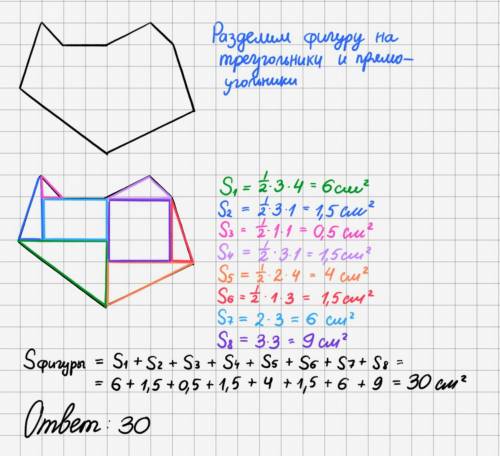 Разделим фигуру на
треугольники и прямо-
угольники
S₁ = 1/2 · 3 · 4 = 6 см²
S₂ = 1/2 · 3 · 1 = 1,5 см²
S₃ = 1/2 · 1 · 1 = 0,5 см²
S₄ = 1/2 · 3 · 1 = 1,5 см²
S₅ = 1/2 · 2 · 4 = 4 см²
S₆ = 1/2 · 1 · 3 = 1,5 см²
S₇ = 2 · 3 = 6 см²
S₈ = 3 · 3 = 9 см²
Sфигуры = S₁ + S₂ + S₃ + S₄ + S₅ + S₆ + S₇ + S₈ =
= 6 + 1,5 + 0,5 + 1,5 + 4 + 1,5 + 6 + 9 = 30 см²
Ответ: 30